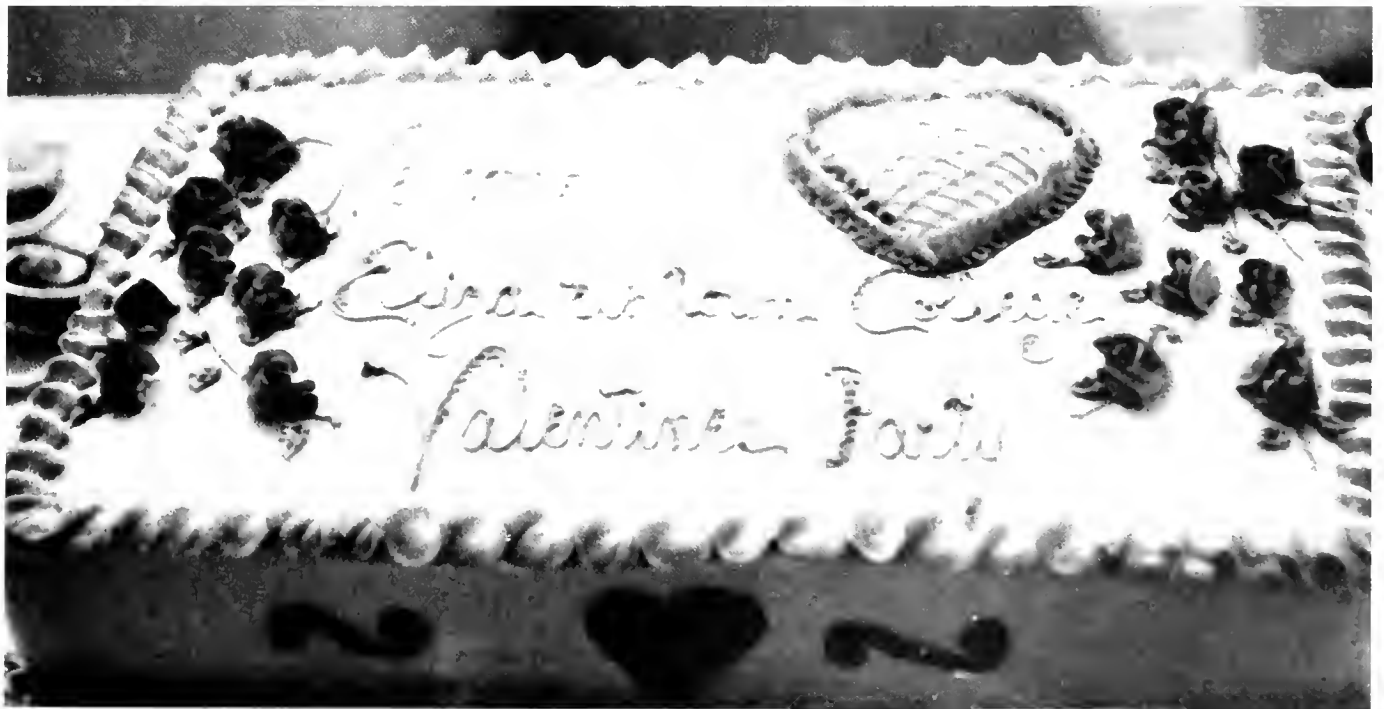 Elizabethtown College
Valentine Party